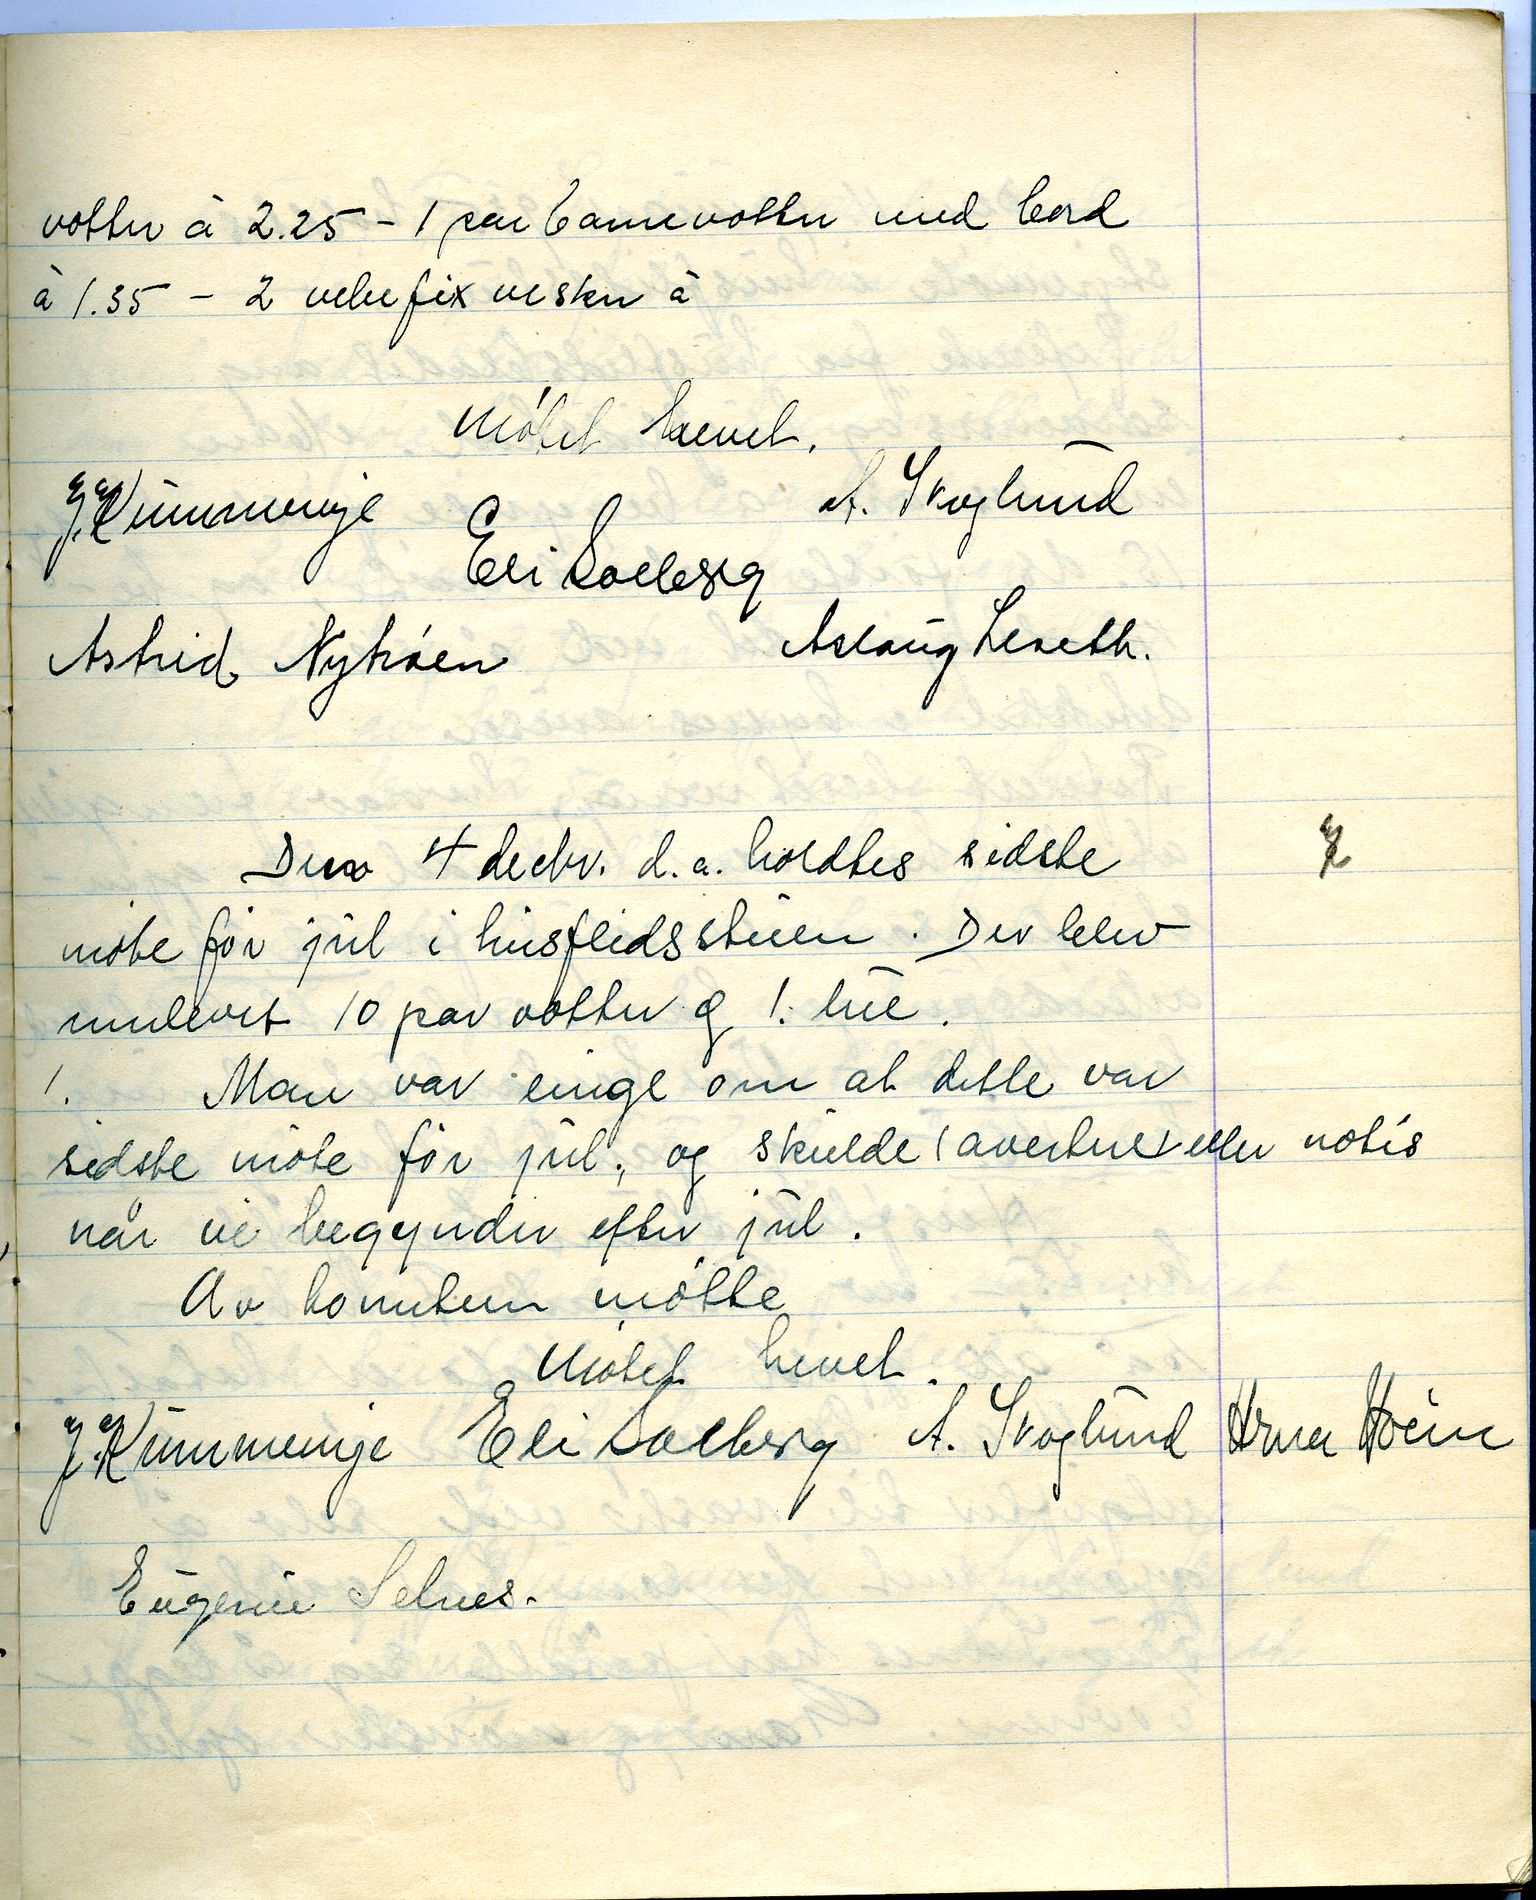 votter à 2.25 - 1 par barnevotter med bord
à 1.35 - 2 velefix vesker à
Møtet hevet.
J. Kummeneje A. Skoglund
Eli Solberg
Astrid Nytrøen Aslaug Leseth.
Den 4 decbr. d.a. holdtes sidste
møte før jul i husflidsstuen. Der blev
innlevert 10 par votter og 1. lue.
1. Man var einge om at dette var
sidste møte før jul, og skulde (avertere) eller notis
når vi begynder efter jul.
Av komiteen møtte
Møtet hevet.
J. Kummeneje Eli Solberg A. Skoglund Erna Hoem
Eugenie Selnes.